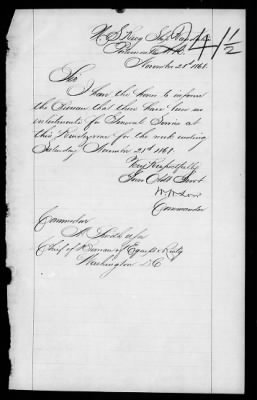 U.S. Recg Ship Vandalia
Portsmouth N.H. 241½
November 21st 1868.
Sir
I have the honor to inform
the Bureau that there have been no
enlistments for General Service at
this Rendezvous for the week ending
Saturday November 21st 1868.
Very Respectfully
Your Obdt Servt
Commander
Commodore
Smith
Chief of Bureau of Equipt & Rectg
Washington D.C